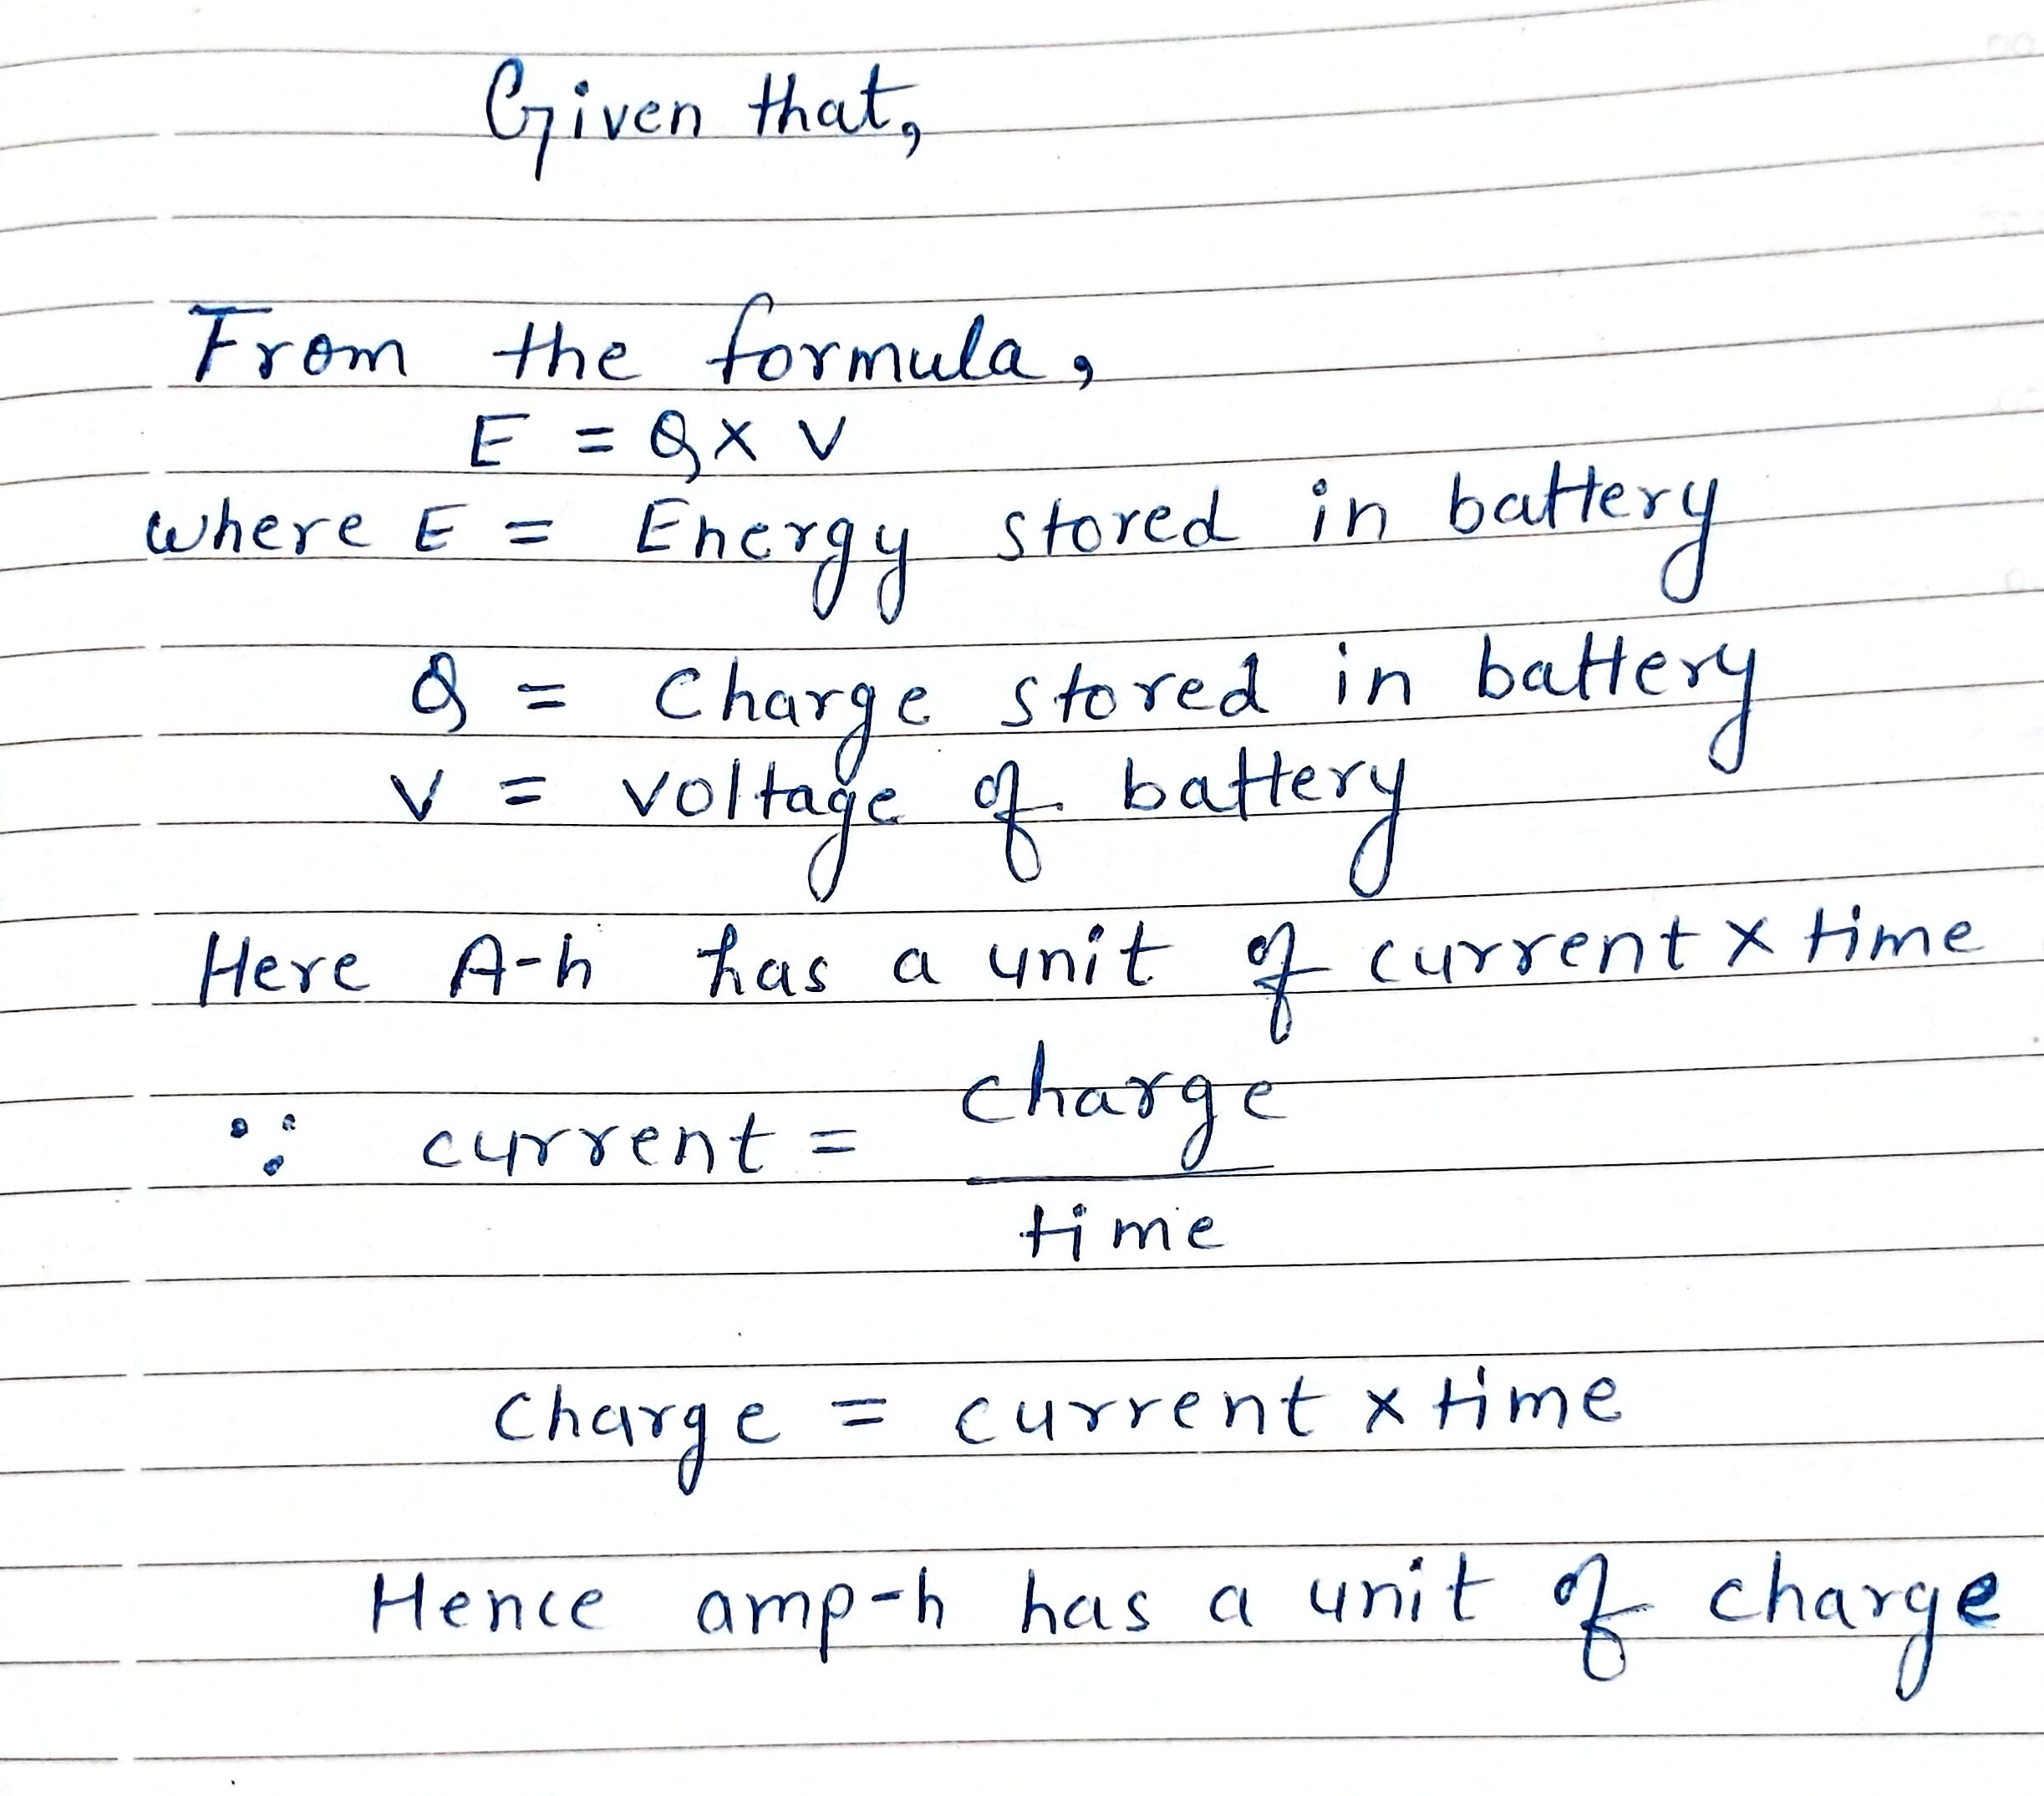 Given that,
From the formula,
E = Q x V
where E = Energy stored in battery
Q = Charge stored in battery
V = voltage of battery
Here A-h has a unit of current x time
∵ current = charge
time
charge = current x time
Hence amp-h has a unit of charge